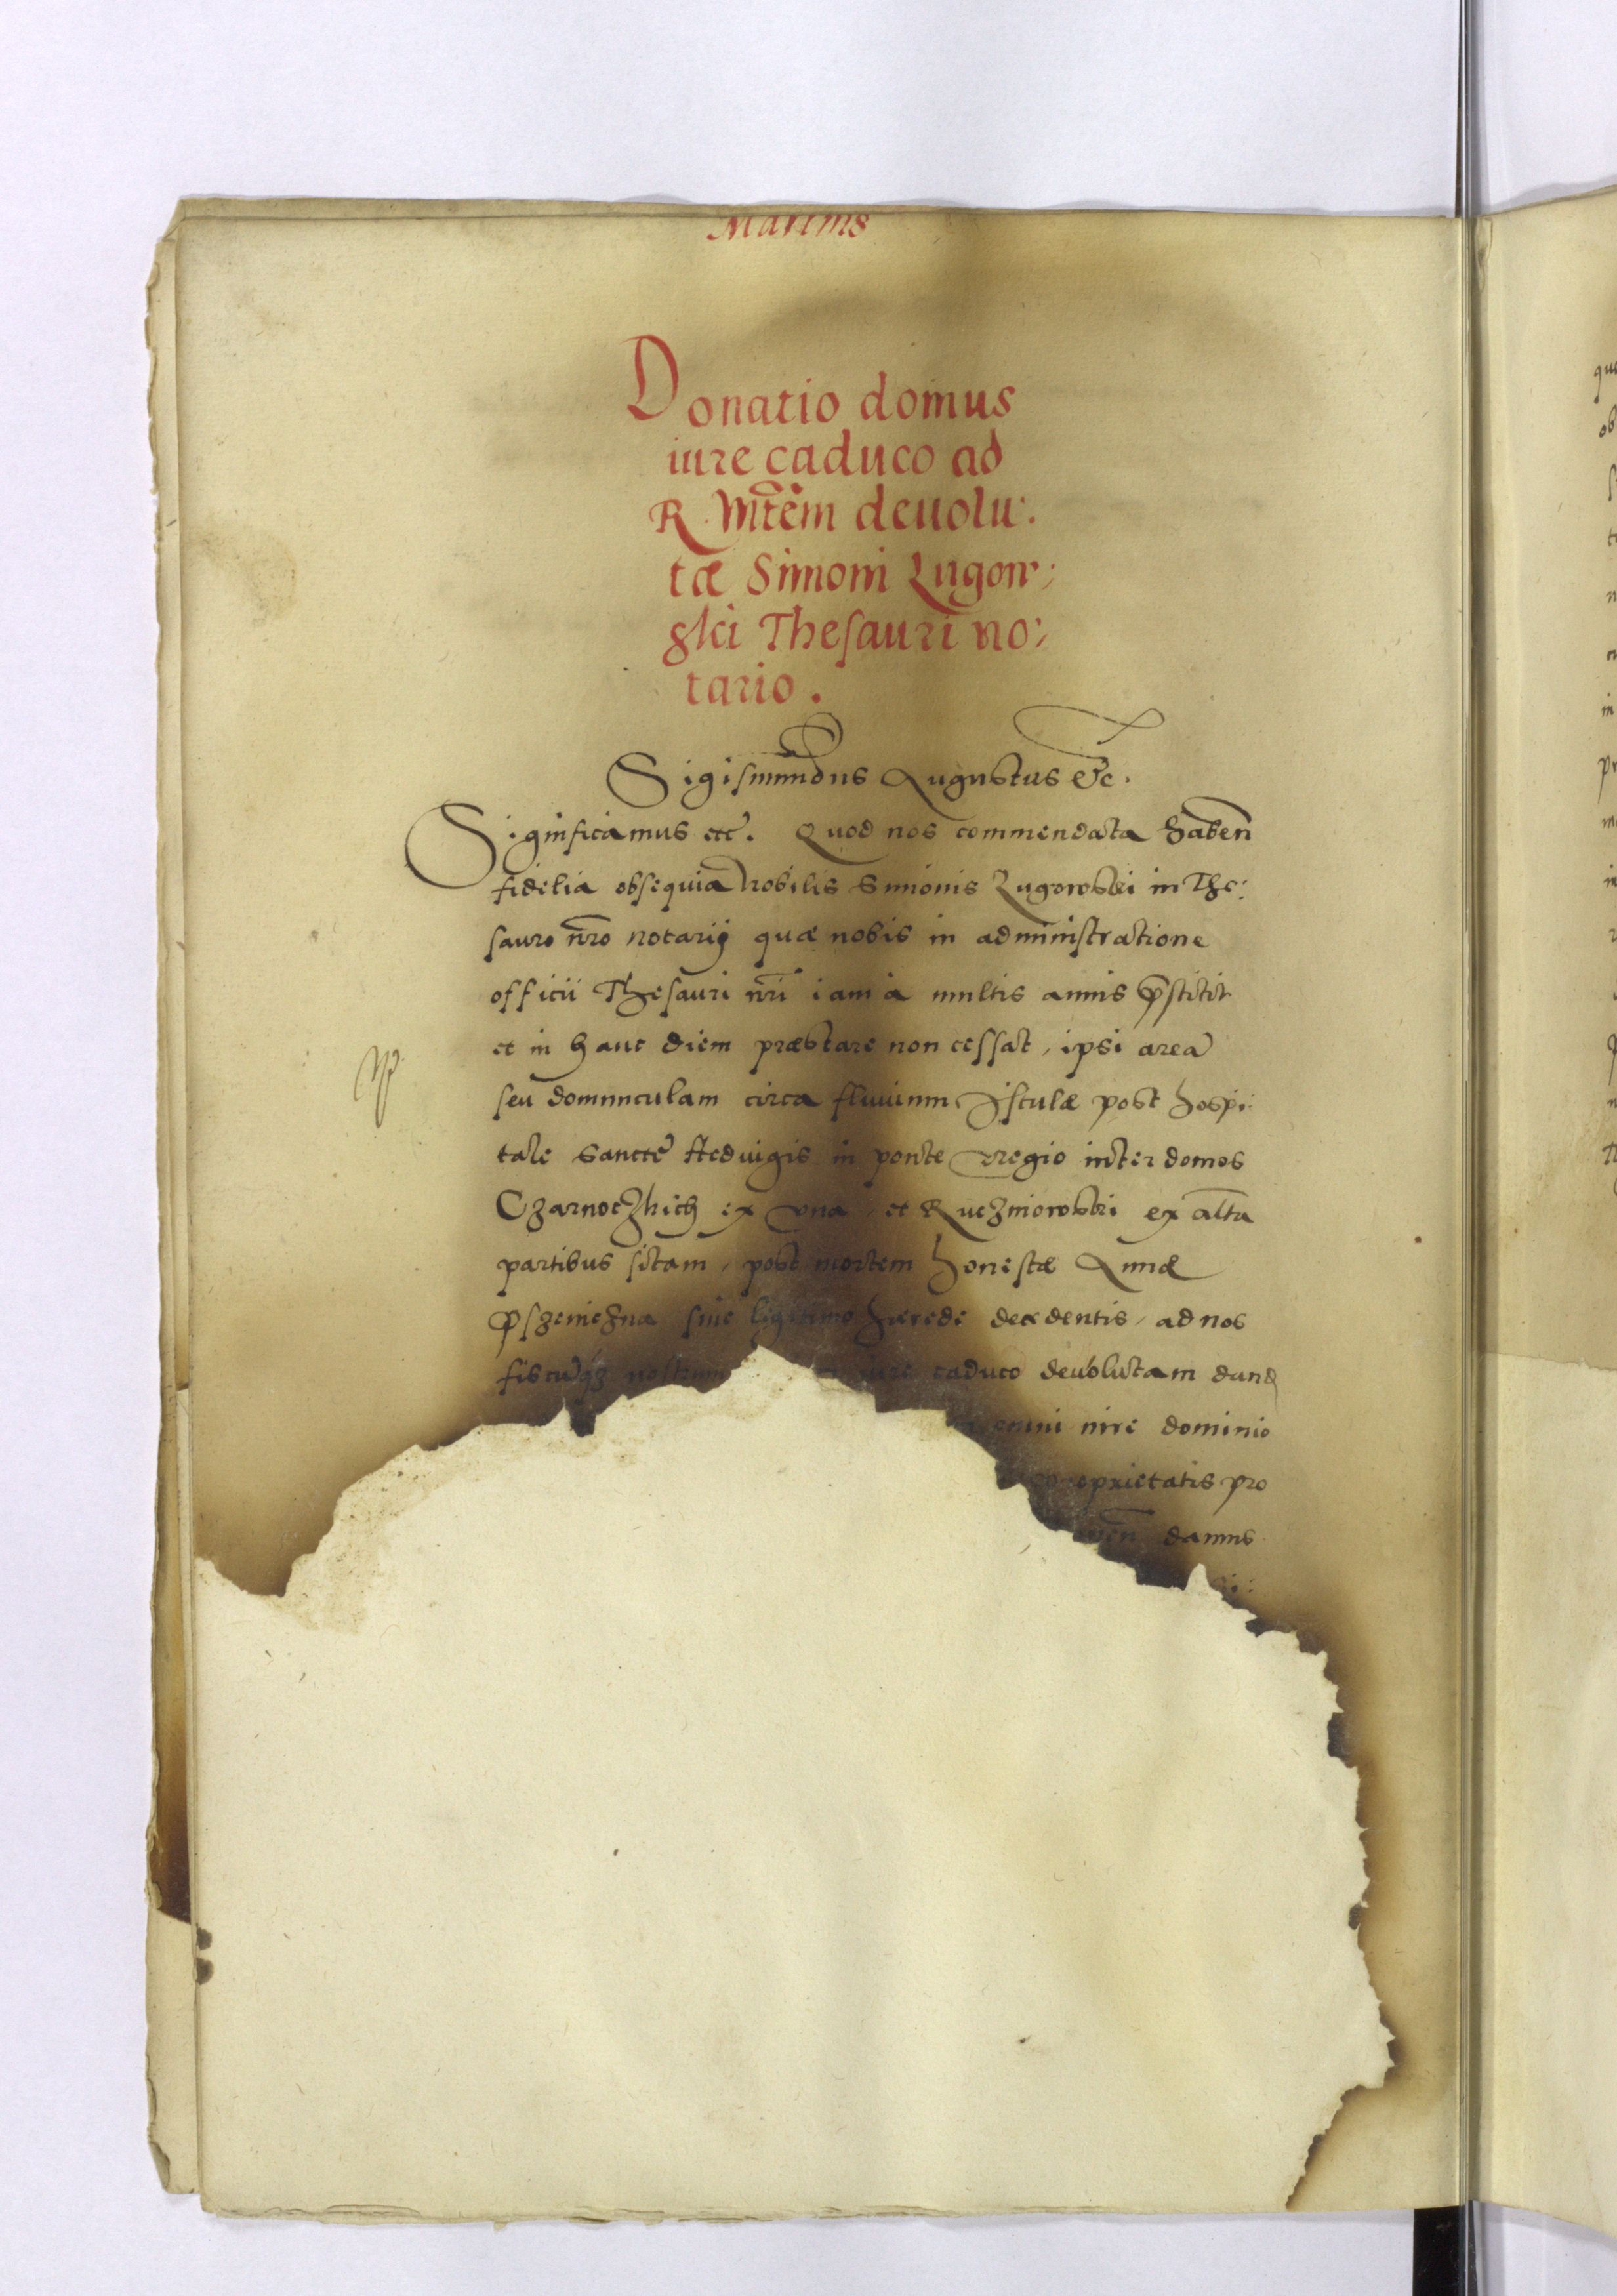 Martius
Donatio domus
iure caduco ad
R. Mtem deuolu:
tæ Simoni Lugow:
ski Thesauri no:
tario.
Sigismundus Augustus etc.
Significamus etc. Quod nos commendata haben
fidelia obsequia Nobilis Simonis Lugowski in The:
sauro nro notarij quæ nobis in administratione
officii Thesauri nri iam a multis annis pstitit
et in hanc diem præstare non cessat, ipsi area
seu domunculam circa fluuium Istulæ post hospi:
tale sancte Heduigis in ponte regio inter domos
Czarnoczkich ex vna, et Kuczmiorowski ex alta
partibus sitam, post mortem honestæ Annæ
Pszeniczna sine legitimo hærede decedentis, ad nos
fiscuqz nostrum iure caduco deuolutam dand
omni iure dominio
proprietatis pro
damus